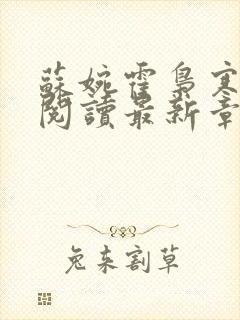 蘇婉霍梟寒
閱讀最新章
兔來割草